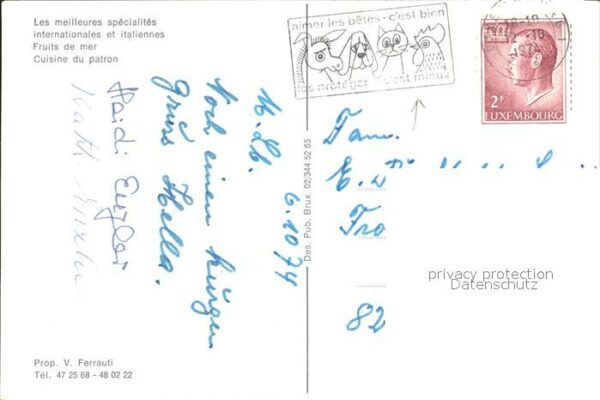 Les meilleures spécialités
internationales et italiennes
Fruits de mer
Cuisine du patron
aimer les bêtes - c'est bien
les protéger c'est mieux
2F
LUXEMBOURG
M. Lb. 6.10 74
Noch einen kurzen
Gruss Hella.
Haidi
Des. Pub. Brux. 02/344 52 65
Fam.
82
privacy protection
Datenschutz
Prop. V. Ferrauti
Tél. 47 25 68 - 48 02 22